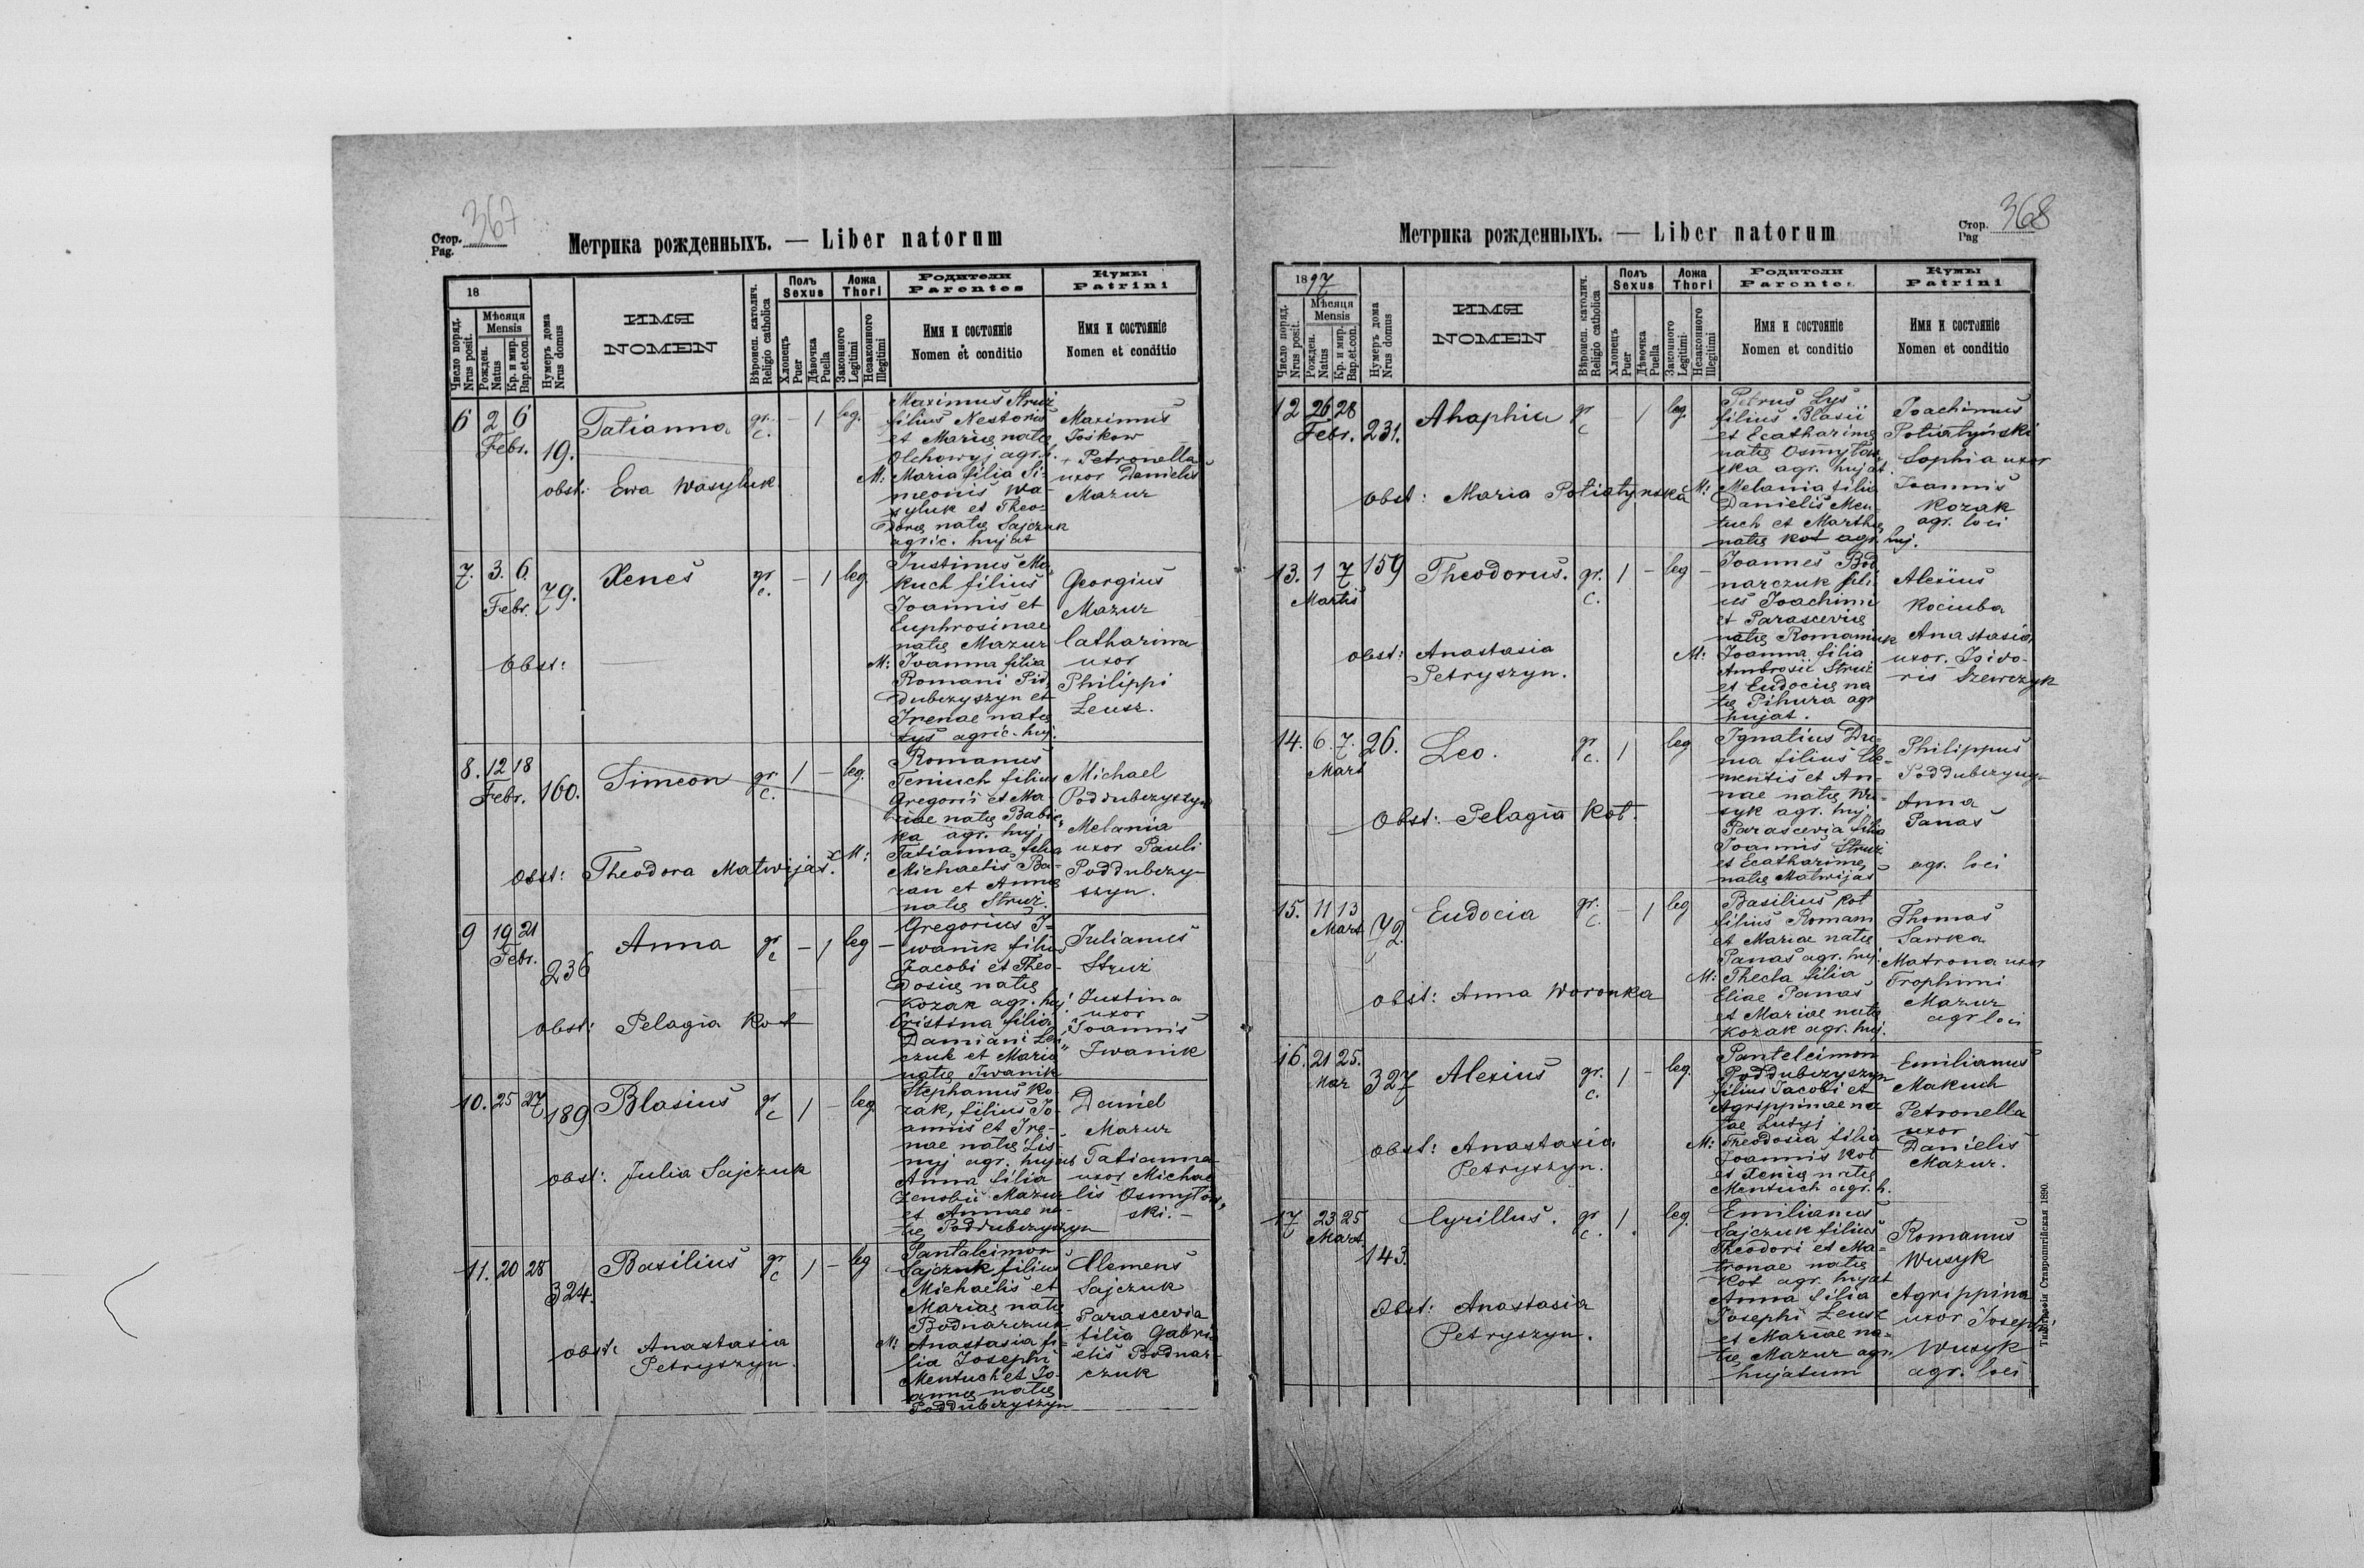 Стор.
Pag. 367
Метрика рожденныхъ. — Liber natorum
18
Число поряд.
Nrus posit.
Мѣсяця
Mensis
Рожден.
Natus
Кр. и мир.
Bap.et.con.
Нумеръ дома
Nrus domus
ИМЯ
NOMEN
Вѣроисп. католич.
Religio catholica
Полъ
Sexus
Хлопецъ
Puer
Дѣвочка
Puella
Ложа
Thori
Законного
Legitimi
Незаконного
Illegtimi
Родители
Parentes
Имя и состоянiе
Nomen et conditio
Кумы
Patrini
Имя и состоянiе
Nomen et conditio
6 2 6
Febr. 19.
Tatianna gr. c. - 1 leg.
obst: Ewa Wasyluk
Maximus Struż
filius Nestoris
et Marię natę
Olchowyj agr. h.
M: Maria filia Si-
meonis Wa-
syluk et Theo-
dorę natę Sajczuk
agric. hujat
Maximus
Joskow
+ Petronella
uxor Danielis
Mazur
7. 3. 6.
Febr. 79.
Xenes gr. c. - 1 leg.
Obst:
Justinus Ma-
kuch filius
Joannis et
Euphrosinae
natę Mazur
M: Joanna filia
Romani Pod
dubczyszyn et
Irenae natę
Łyś agric. huj.
Georgius
Mazur
Catharina
uxor
Philippi
Leusz.
8. 12 18
Febr. 160.
Simeon gr. c. 1 - leg.
obst: Theodora Matwijas.
Romanus
Feniuch filius
Gregorii et Ma-
riae natę Babic
ka agr. huj
M: Tatianna filia
Michaelis Ba-
ran et Annę
natę Struż.
Michael
Poddubczyszyn
Melania
uxor Pauli
Poddubczy-
szyn.
9 19 21
Febr.
236
Anna gr c - 1 leg -
obst: Pelagia Kot
Gregorius I-
wanik filius
Jacobi et Theo-
dosię natę
Kozak agr. huj.
Cristina filia
Damiani
czuk et Marię
natę Iwanik
Julianus
Struż
Justina
uxor
Joannis
Iwanik
10. 25 27
189
Blasius gr c 1 - leg.
obst: Julia Sajczuk
Stephanus Ko
zak, filius Jo-
annis et Ire-
nae natę Lis-
nyj agr. hujat
Anna filia
Zenobii Mazur
et Annae na-
tę Poddubczyszyn
Daniel
Mazur
Tatianna
uxor Michae
lis Osmyłow
ski. -
11. 20 28
324.
Basilius gr c 1 - leg
obst: Anastasia
Petryszyn.
Pantaleimon
Sajczuk filius
Michaelis et
Mariae natę
Bodnarczuk
M: Anastasia fi-
lia Josephi
Mentuch et Jo-
annę natę
Poddubczyszyn
Clemens
Sajczuk
Parascevia
filia Gabri
elis Bodnar-
czuk
Метрика рожденныхъ. — Liber natorum
Стор.
Pag 368
1897
Число поряд.
Nrus posit.
Мѣсяця
Mensis
Рожден.
Natus
Кр. и мир.
Bap.et.con.
Нумеръ дома
Nrus domus
ИМЯ
NOMEN
Вѣроисп. католич.
Religio catholica
Полъ
Sexus
Хлопецъ
Puer
Дѣвочка
Puella
Ложа
Thori
Законного
Legitimi
Незаконного
Illegtimi
Родители
Parentes
Имя и состоянiе
Nomen et conditio
Кумы
Patrini
Имя и состоянiе
Nomen et conditio
12 26 28
Febr. 231.
Ahaphia gr c 1 leg.
obst: Maria Potiatynska
Petrus Lys
filius Blasii
et Ecatharinę
natę Osmyłow
ska agr. hujat.
M: Melania filia
Danielis Men-
tuch et Marthę
natę Kot agr. huj.
Joachimus
Potiatyński
Sophia uxor
Joannis
Kozak
agr. loci
13. 1 7
Martis
159
Theodorus. gr. c. 1 - leg -
obst: Anastasia
Petryszyn.
Joannes Bod
narczuk fili-
us Joachimi
et Parascevię
natę Romaniuk
M: Joanna filia
Ambrosii Struż
et Eudocię na
tę Pihura agr
hujat.
Alexius
Kociuba
Anastasia
uxor. Isido-
ris Szewczyk
14. 6. 7.
Mart
26.
Leo. gr c. 1 leg
Obst: Pelagia Kot.
Ignatius Du-
ma filius Cle-
mentis et An-
nae natę Wu-
syk agr. huj
Parascevia filia
Joannis Struż
et Ecatharinę
natę Matwijas
Philippus
Anna
Panas
agr. loci
15. 11 13
Mart 72.
Eudocia gr. c. - 1 leg
obst: Anna Woronka
Basilius Kot
filius Romani
et Mariae natę
Panas agr. huj.
M: Thecla filia
Eliae Panas
et Mariae natę
Kozak agr. huj.
Thomas
Sawka
Matrona uxor
Trophimi
Mazur
agr loci
16. 21 25.
Mar 327
Alexius gr. c. 1 - leg.
obst: Anastasia
Petryszyn.
Panteleimon
Poddubczyszyn
filius Jacobi et
Agrippinae na
tae Lutyj
M: Theodosia filia
Joannis Kot
et Xenię natę
Mentuch agr. h.
Emilianus
Makuch
Petronella
uxor
Danielis
Mazur.
17 23 25
Mart
143.
Cyrillus. gr c. 1. leg.
Obst: Anastasia
Petryszyn.
Emilianus
Sajczuk filius
Theodori et Ma-
tronae natę
Kot agr. hujat
Anna filia
Josephi Leusz
et Mariae na-
tę Mazur agr.
hujatum
Romanus
Wusyk
Agrippina
uxor Josephi
Wusyk
agr. loci
Ставропигiйская 1890.